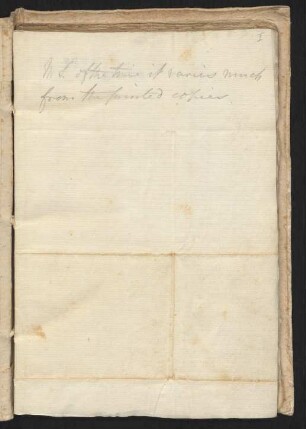 3
M S of the time it varies much
from the printed copies